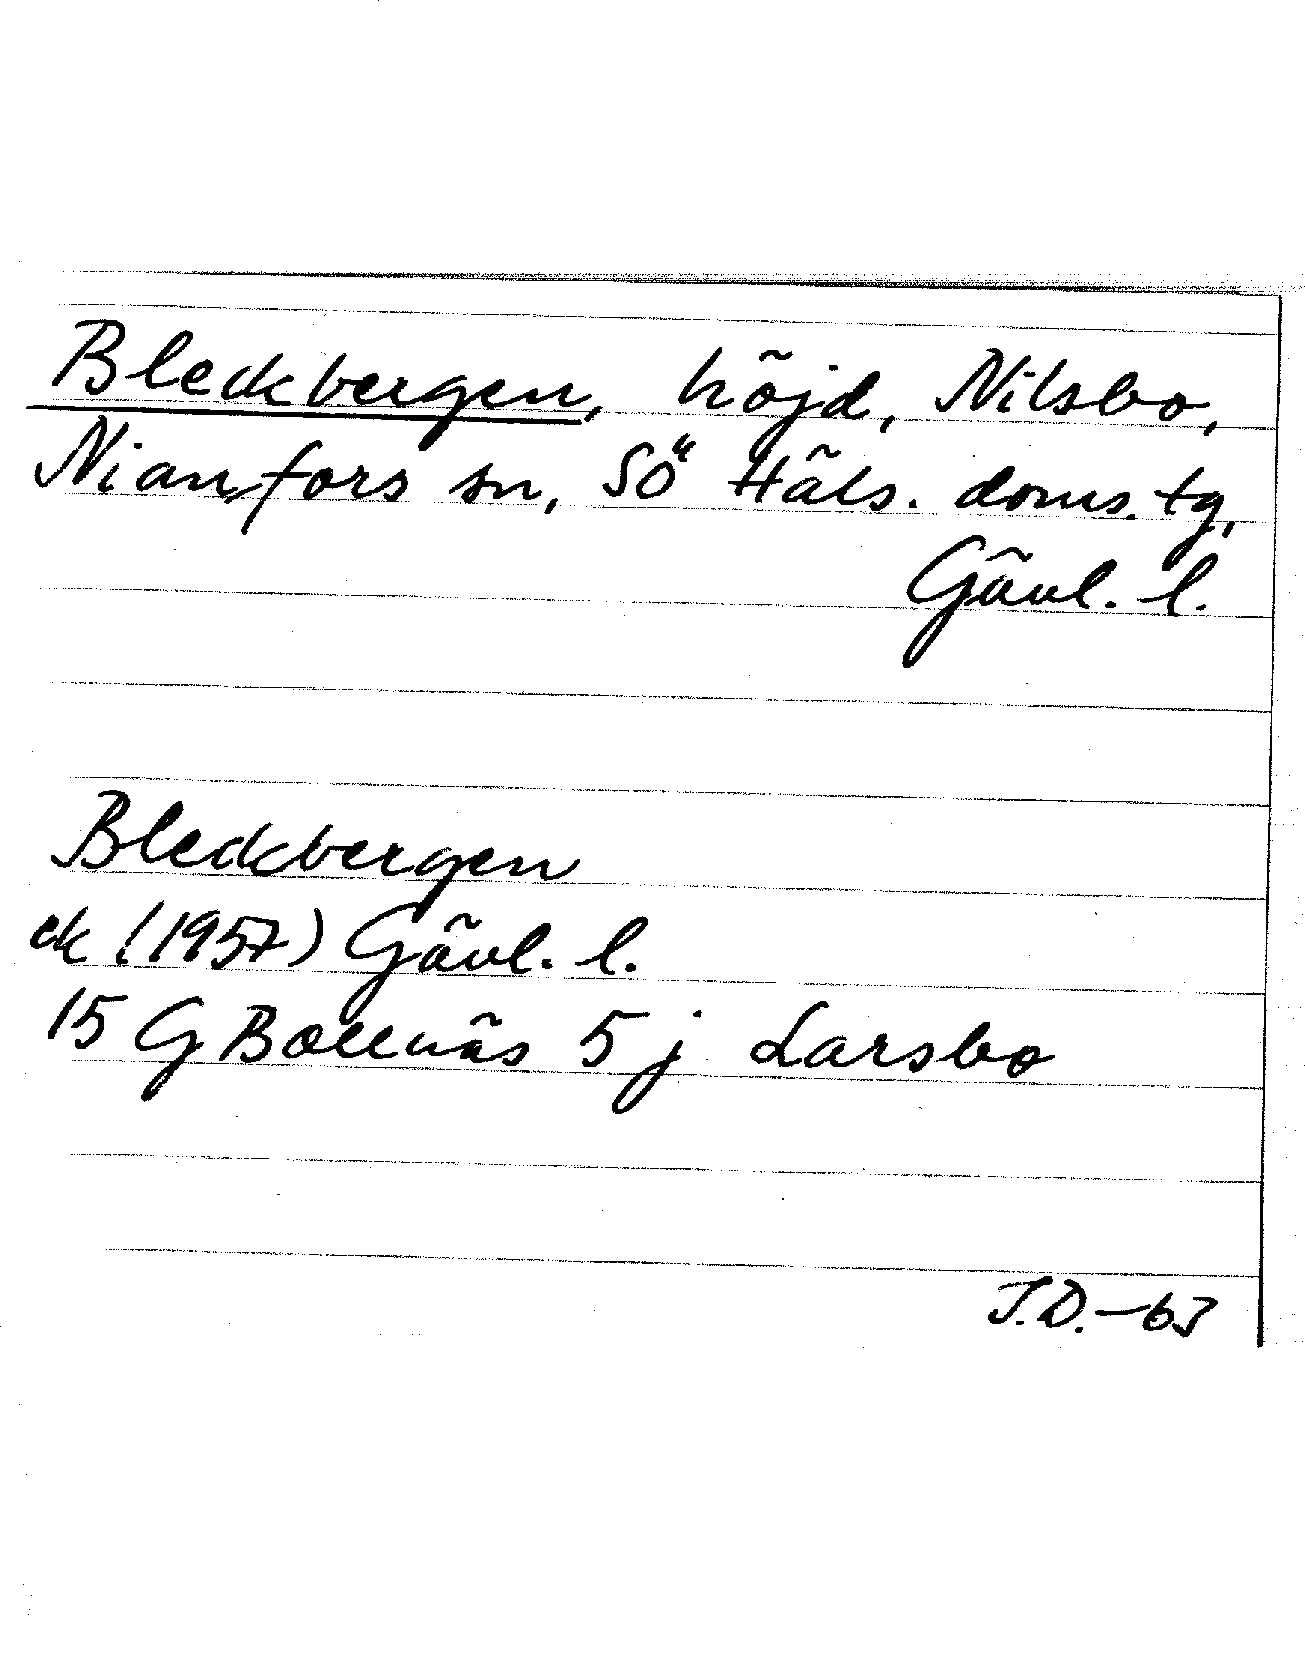 Bleckbergen, höjd, Nilsbo,
Nianfors sn, Sö Häls. doms. tg,
Gävl. l.
Bleckbergen
ek (1957) Gävl. l.
15 G Bollnäs 5 j Larsbo
J.D.-63